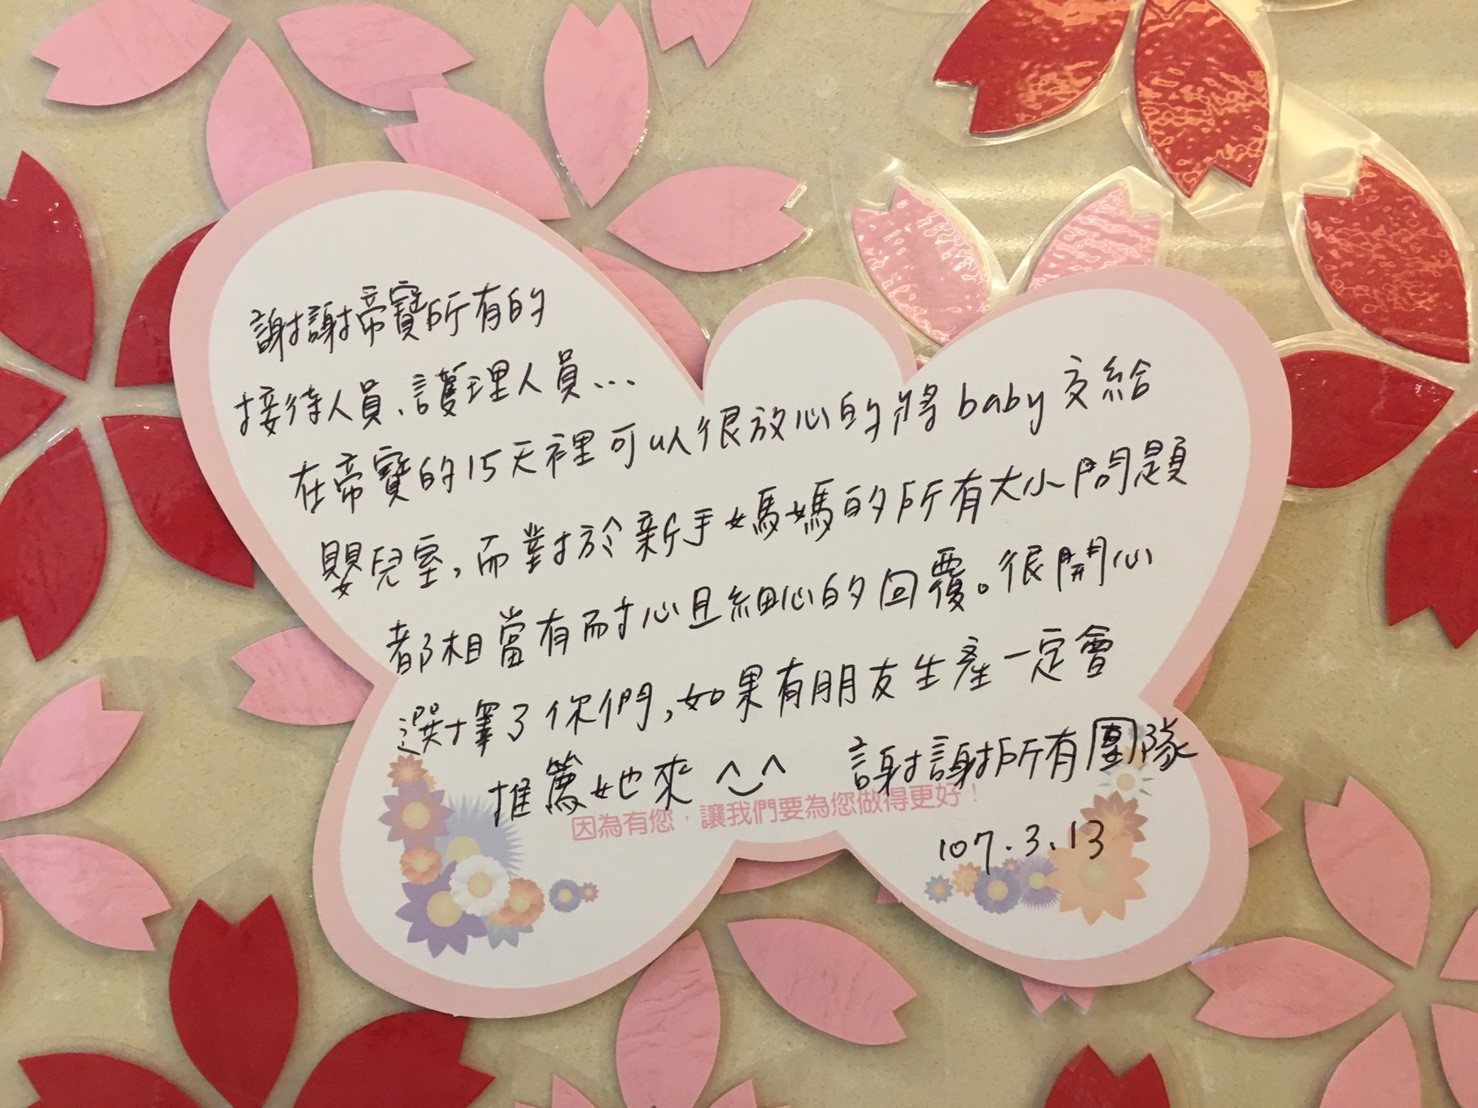 謝謝帝寶所有的
接待人員、護理人員...
在帝寶的15天裡可以很放心的將baby交給
嬰兒室，而對於新手媽媽的所有大小問題
都相當有耐心且細心的回覆。很開心
選擇了你們，如果有朋友生產一定會
推薦她來 ^_^ 謝謝所有團隊
因為有您，讓我們要為您做得更好！
107.3.13